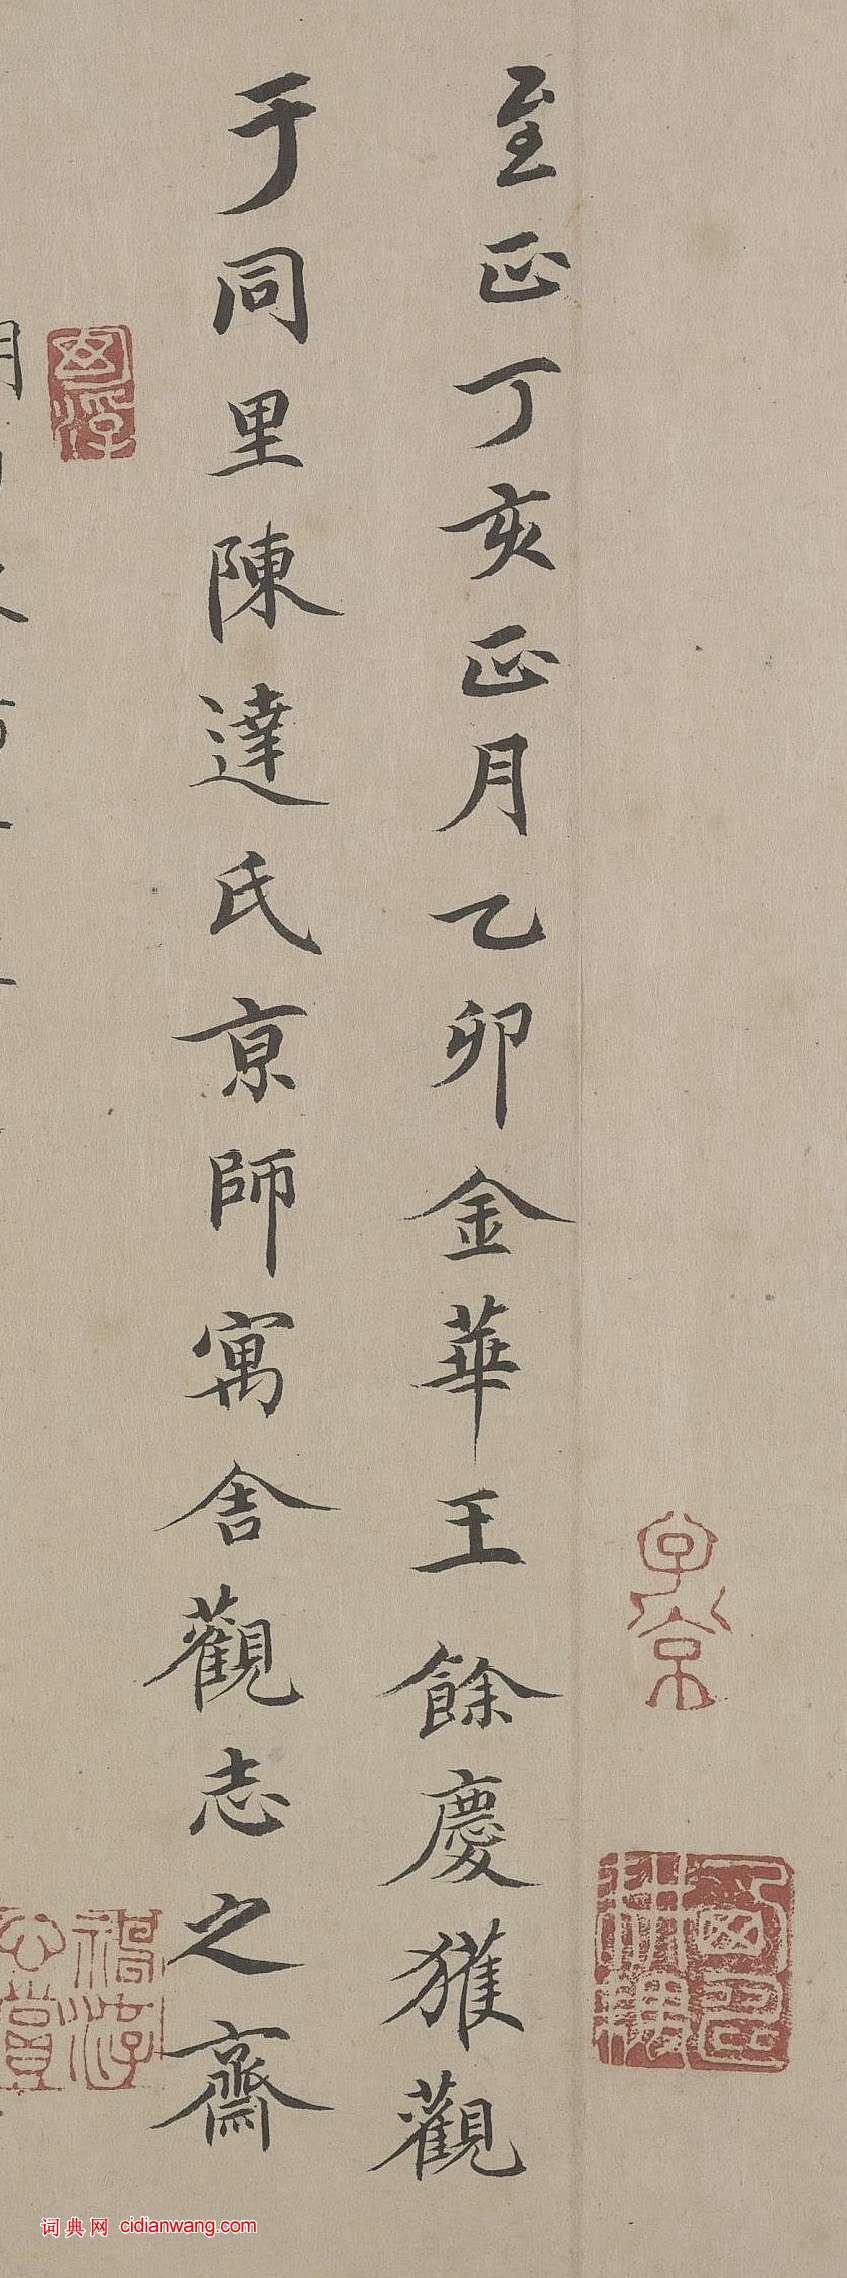 至正丁亥正月乙卯金華王餘慶獲觀
于同里陳達氏京師寓舍觀志之齋
子京
词典网 cidianwang.com